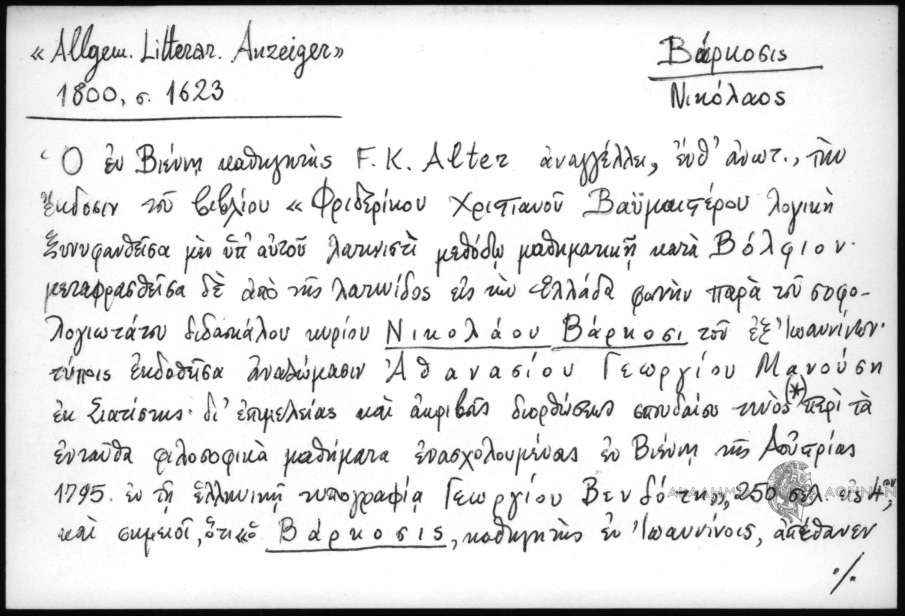 « Allgem. Litterar. Anzeiger»
1800, σ. 1623
Βάρκοσις
Νικόλαος
Ὁ ἐν Βιέννῃ καθηγητὴς F. K. Alter ἀναγγέλλει, ἔνθ' ἀνωτ., τὴν
ἔκδοσιν τοῦ βιβλίου « Φριδερίκου Χριστιανοῦ Βαϋμαιστέρου λογικὴ
ξυνυφανθεῖσα μὲν ὑπ' αὐτοῦ λατινιστὶ μεθόδῳ μαθηματικῇ κατὰ Βόλφιον·
μεταφρασθεῖσα δὲ ἀπὸ τῆς λατινίδος εἰς τὴν Ἑλλάδα φωνὴν παρὰ τοῦ σοφο-
λογιωτάτου διδασκάλου κυρίου Νικολάου Βάρκοσι τοῦ ἐξ Ἰωαννίνων·
τύποις ἐκδοθεῖσα ἀναλώμασιν Ἀθανασίου Γεωργίου Μανούση
ἐκ Σιατίστης· δι' ἐπιμελείας καὶ ἀκριβοῦς διορθώσεως σπουδαίου τινὸς (*) περὶ τὰ
ἐνταῦθα φιλοσοφικὰ μαθήματα ἐνασχολουμένου ἐν Βιέννῃ τῆς Αὐστρίας
1795. ἐν τῇ ἑλληνικῇ τυπογραφίᾳ Γεωργίου Βενδότη», 250 σελ. εἰς 4ον,
καὶ σημειοῖ, ὅτι ὁ Βάρκοσις, καθηγητὴς ἐν Ἰωαννίνοις, ἀπέθανεν
./.
ΑΚΑΔΗΜΙΑ ΑΘΗΝΩΝ